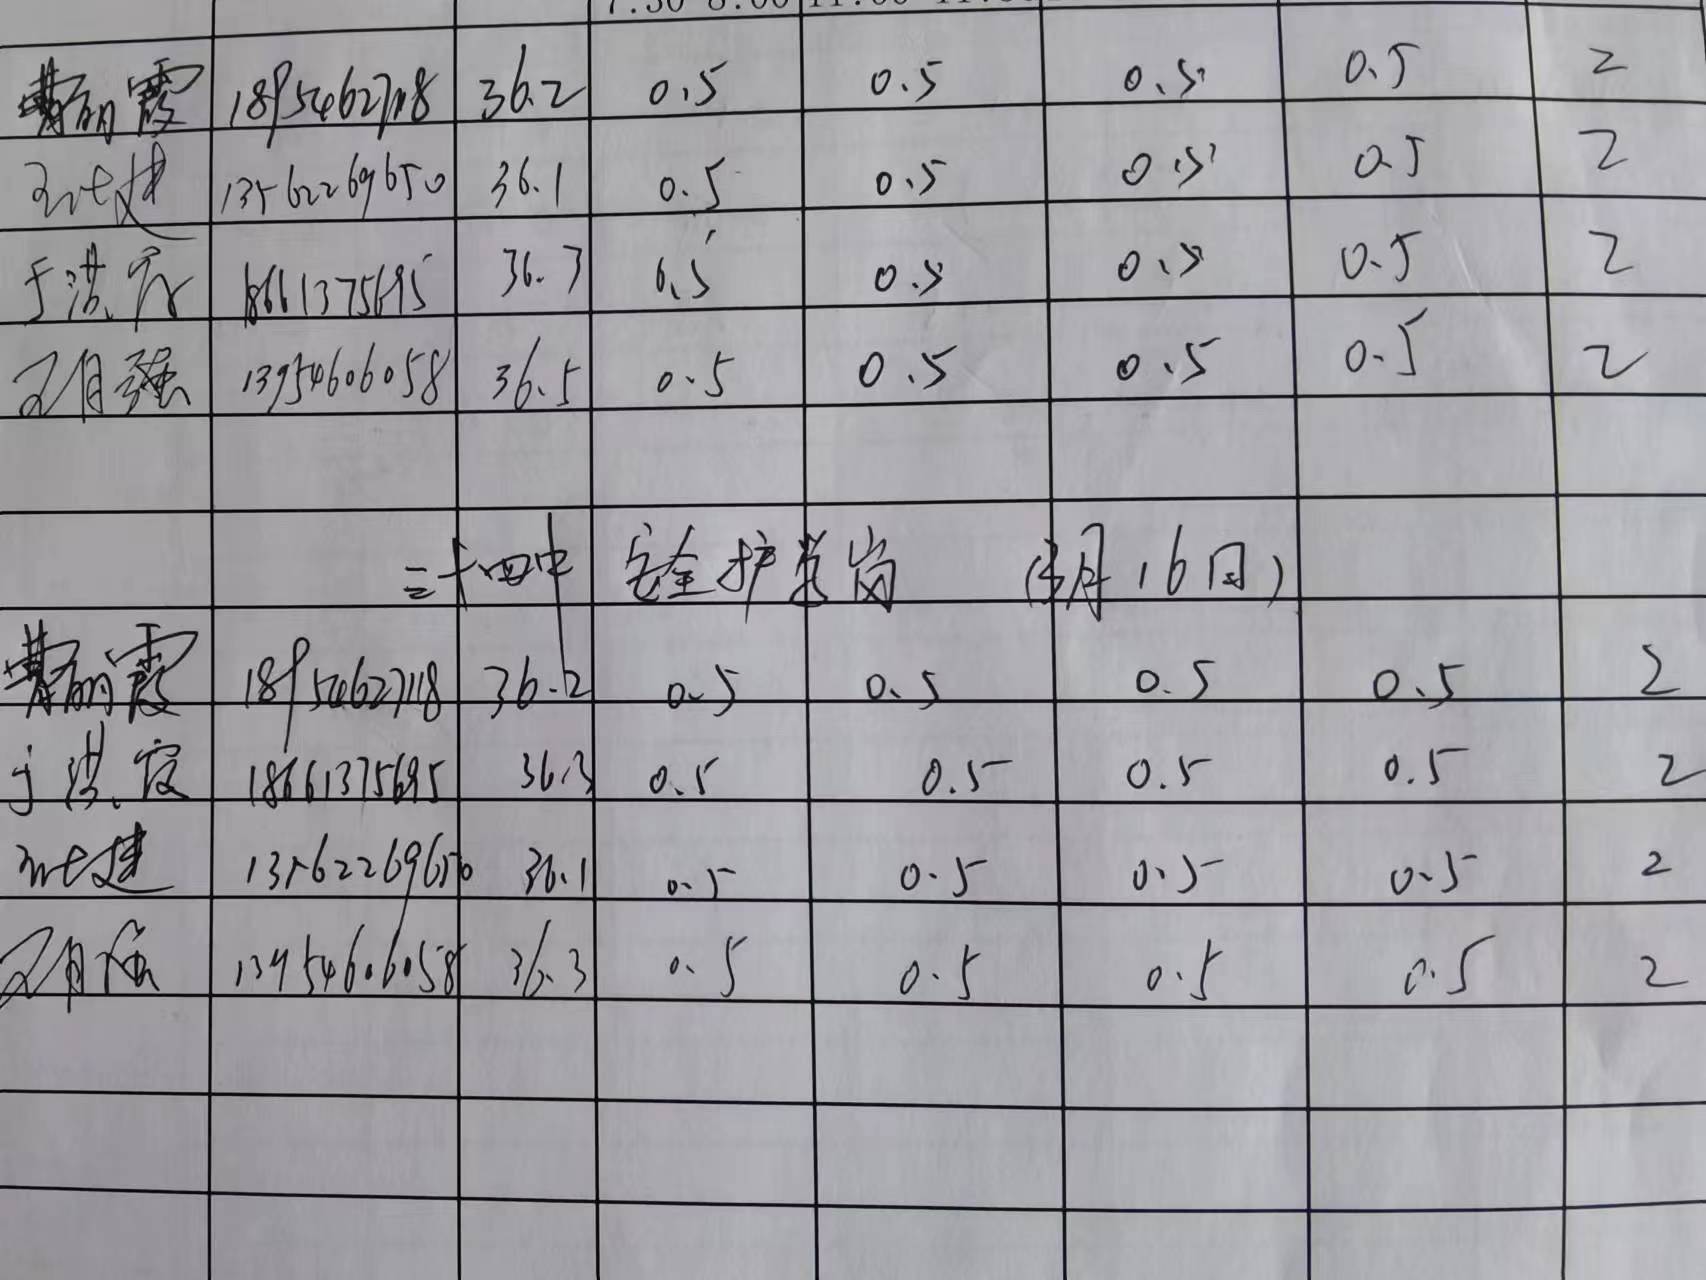 7:30-8:00
霞 18954627118 36.2 0.5 0.5 0.5 0.5 2
建 13562269650 36.1 0.5 0.5 0.5 0.5 2
于洪霞 18661375695 36.3 0.5 0.5 0.5 0.5 2
王月强 13954606058 36.5 0.5 0.5 0.5 0.5 2
二十四中 安全护学岗 (3月16日)
霞 18954627118 36.2 0.5 0.5 0.5 0.5 2
于洪霞 18661375695 36.3 0.5 0.5 0.5 0.5 2
建 13562269650 36.1 0.5 0.5 0.5 0.5 2
王月强 13954606058 36.3 0.5 0.5 0.5 0.5 2